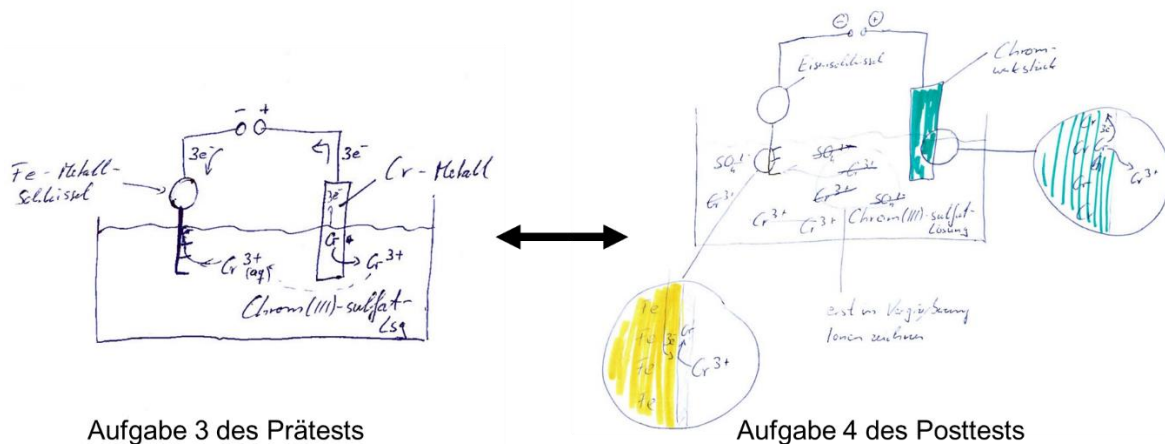 - +
3e⁻ 3e⁻
Fe-Metall-
Schlüssel
Cr-Metall
3e⁻
Cr
Cr³⁺
(aq)
Cr³⁺
Chrom(III)-sulfat-
Lsg
Aufgabe 3 des Prätests
⊖ ⊕
Eisenschlüssel
Chrom-
werkstück
SO₄²⁻ SO₄²⁻ Cr³⁺
Cr³⁺ Cr³⁺ SO₄²⁻
Cr³⁺ Cr³⁺ Chrom(III)-sulfat-
Lösung
Cr
3e⁻
Cr Cr
Cr
Cr
Cr³⁺
erst in Vergrößerung
Ionen zeichnen
Fe
Fe 3e⁻ Cr
Fe Cr³⁺
Fe
Aufgabe 4 des Posttests